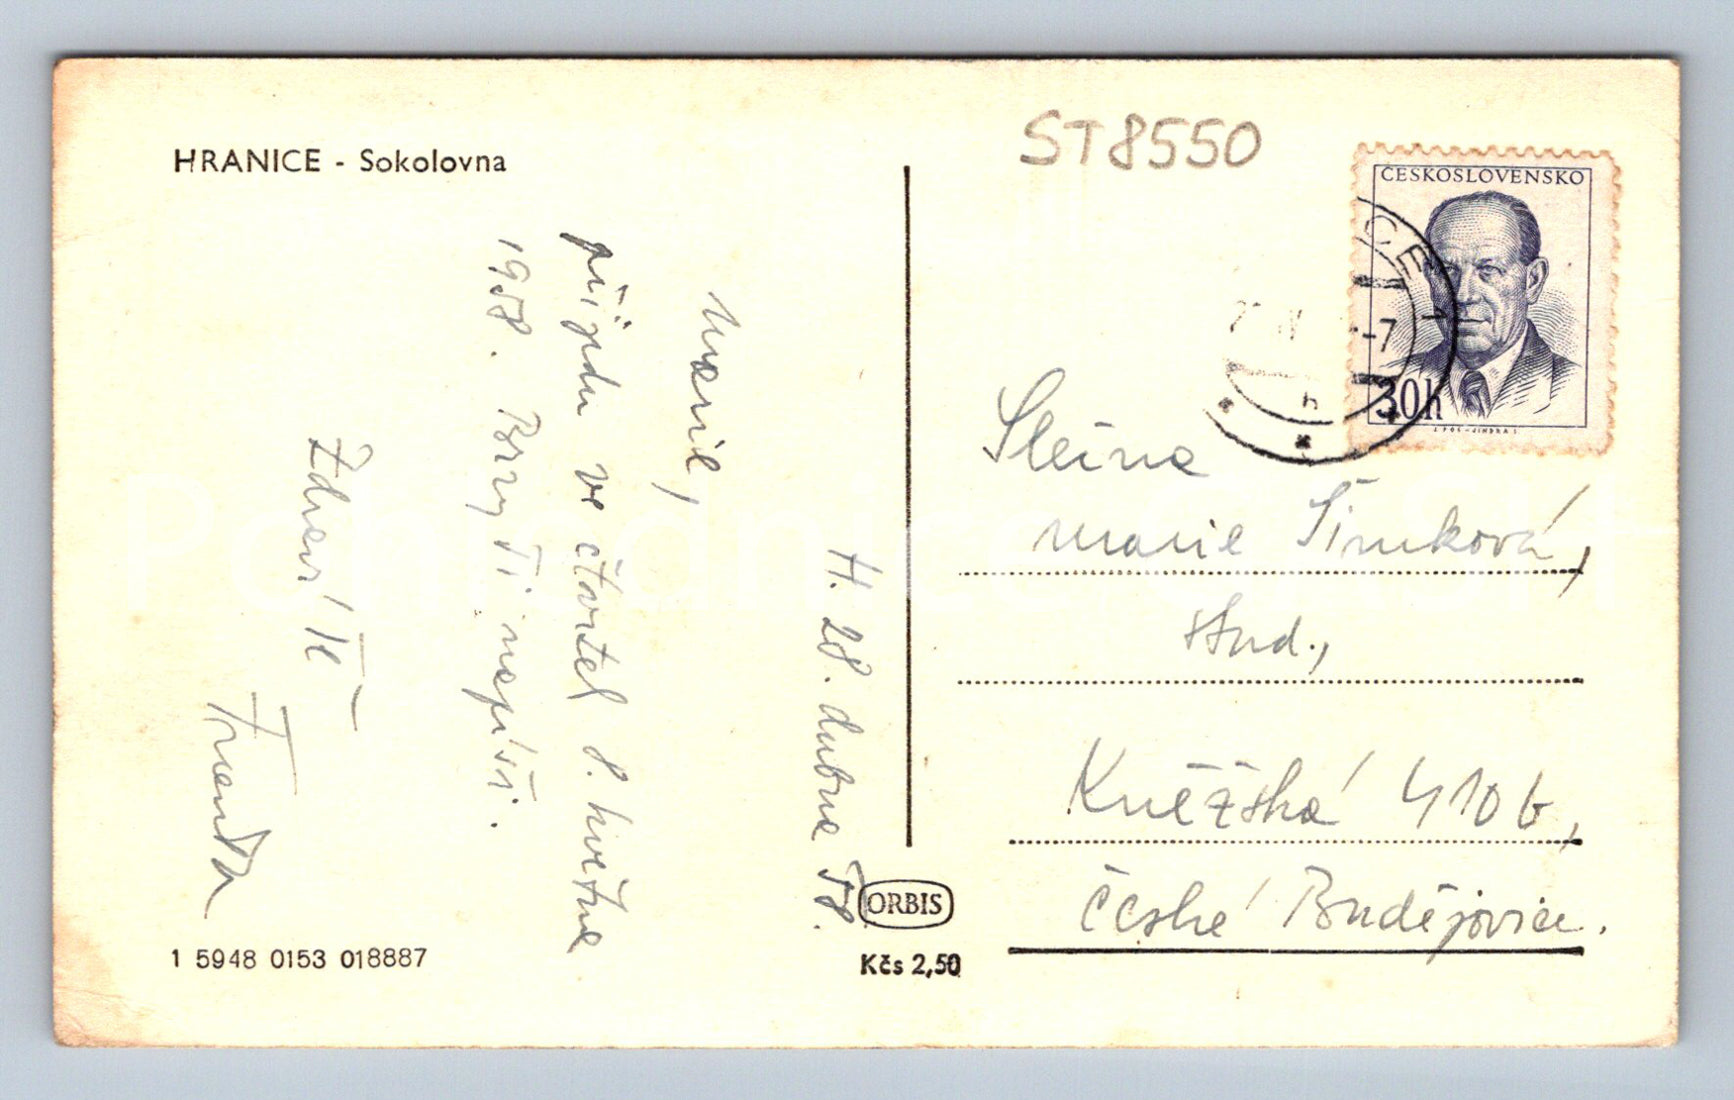 HRANICE - Sokolovna
ST8550
ČESKOSLOVENSKO
30h
H. 28. dubna 58.
Marie,
přijedu ve čtvrtek 8. května
1958. Brzy Ti napíši.
Zdraví Tě
Franta
Slečna
Marie Šimková,
stud.,
Kněžská 410 b,
České Budějovice.
ORBIS
Kčs 2,50
1 5948 0153 018887
Pohlednice